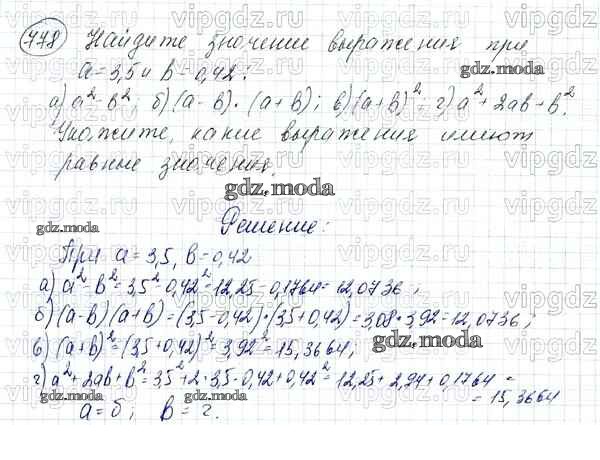 778 Найдите значение выражения при
a = 3,5 и b = 0,42:
а) a² - b²; б) (a - b) · (a + b); в) (a + b)²; г) a² + 2ab + b².
Укажите, какие выражения имеют
равные значения.
gdz.moda
gdz.moda
gdz.moda
Решение:
При a = 3,5, b = 0,42
а) a² - b² = 3,5² - 0,42² = 12,25 - 0,1764 = 12,0736;
б) (a - b)(a + b) = (3,5 - 0,42) · (3,5 + 0,42) = 3,08 · 3,92 = 12,0736;
в) (a + b)² = (3,5 + 0,42)² = 3,92² = 15,3664;
gdz.moda
г) a² + 2ab + b² = 3,5² + 2 · 3,5 · 0,42 + 0,42² = 12,25 + 2,94 + 0,1764 =
= 15,3664
а = б; в = г.
gdz.moda
gdz.moda
gdz.moda